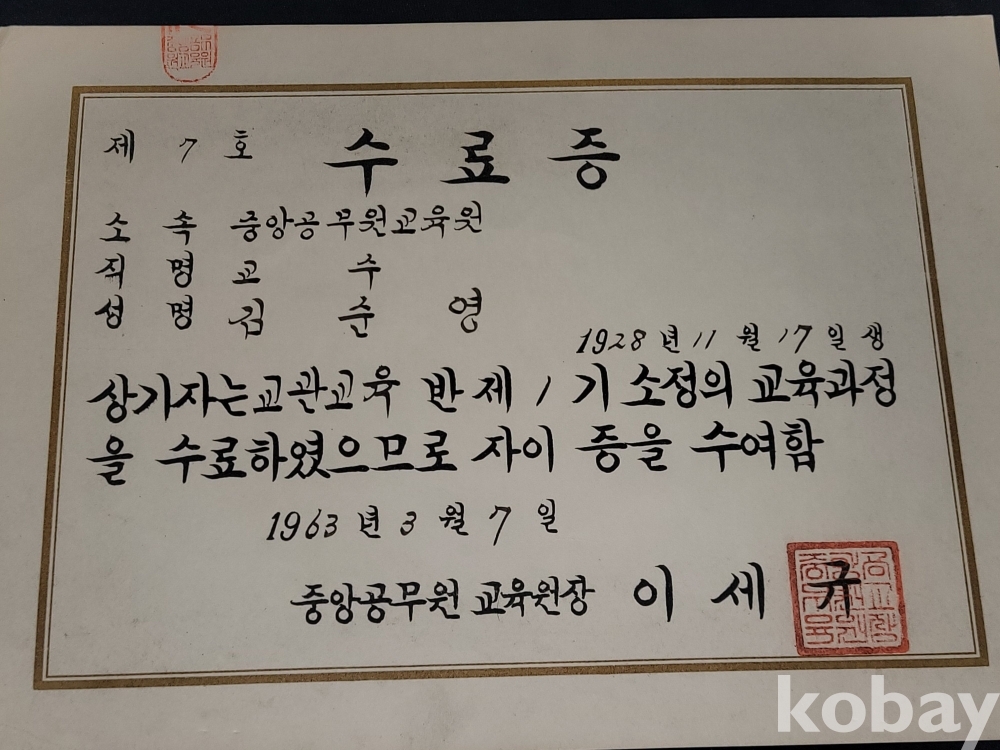 제 7 호 수 료 증
소 속 중앙공무원교육원
직 명 교 수
성 명 김 준 영
1928 년 11 월 17 일 생
상기자는교관교육 반 제 1 기 소정의 교육과정
을 수료하였으므로 자이 증을 수여함
1963 년 3 월 7 일
중앙공무원 교육원장 이 세 규
kobay